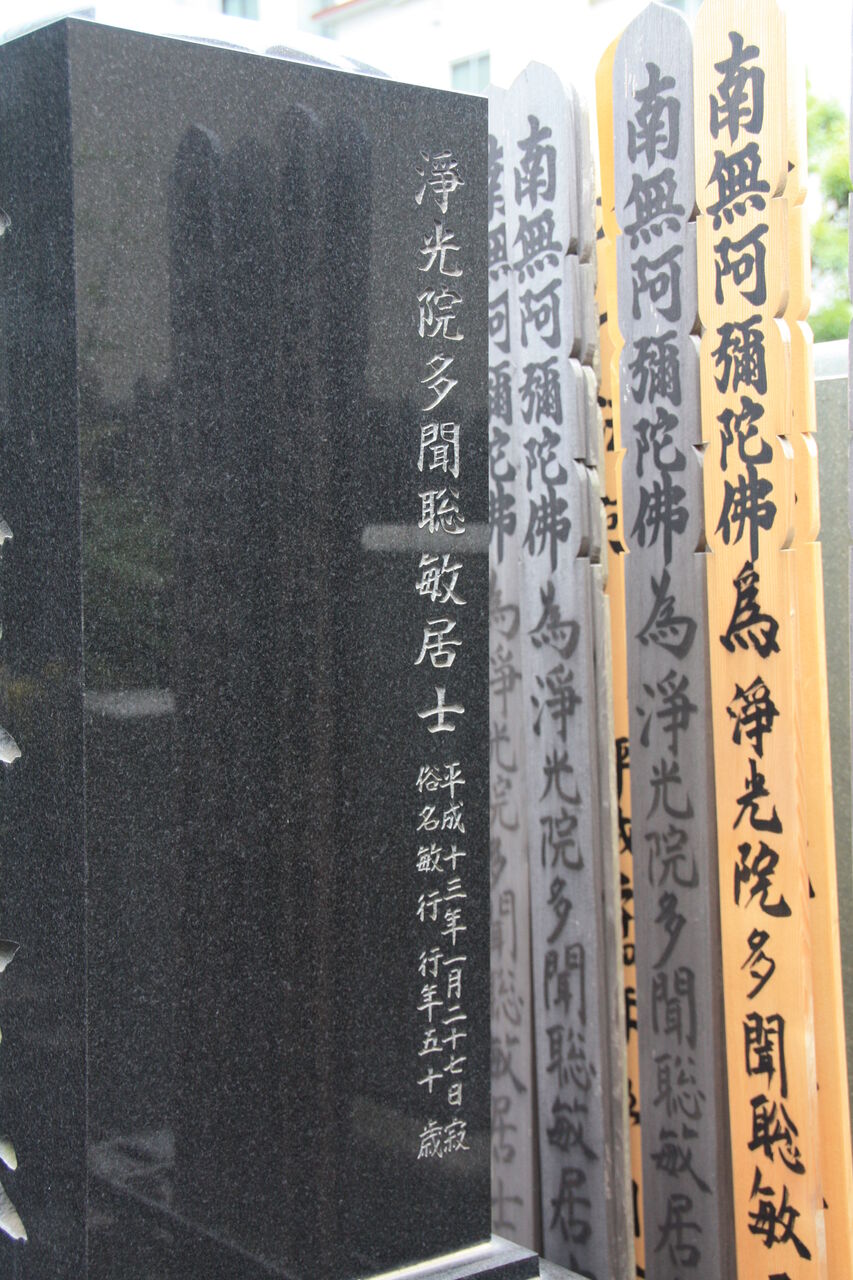 淨光院多聞聡敏居士
平成十三年一月二十七日寂
俗名敏行 行年五十歳
南無阿彌陀佛為淨光院多聞聡敏
南無阿彌陀佛為淨光院多聞聡敏居
南無阿彌陀佛為淨光院多聞聡敏居
南無阿彌陀佛為淨光院多聞聡敏居士